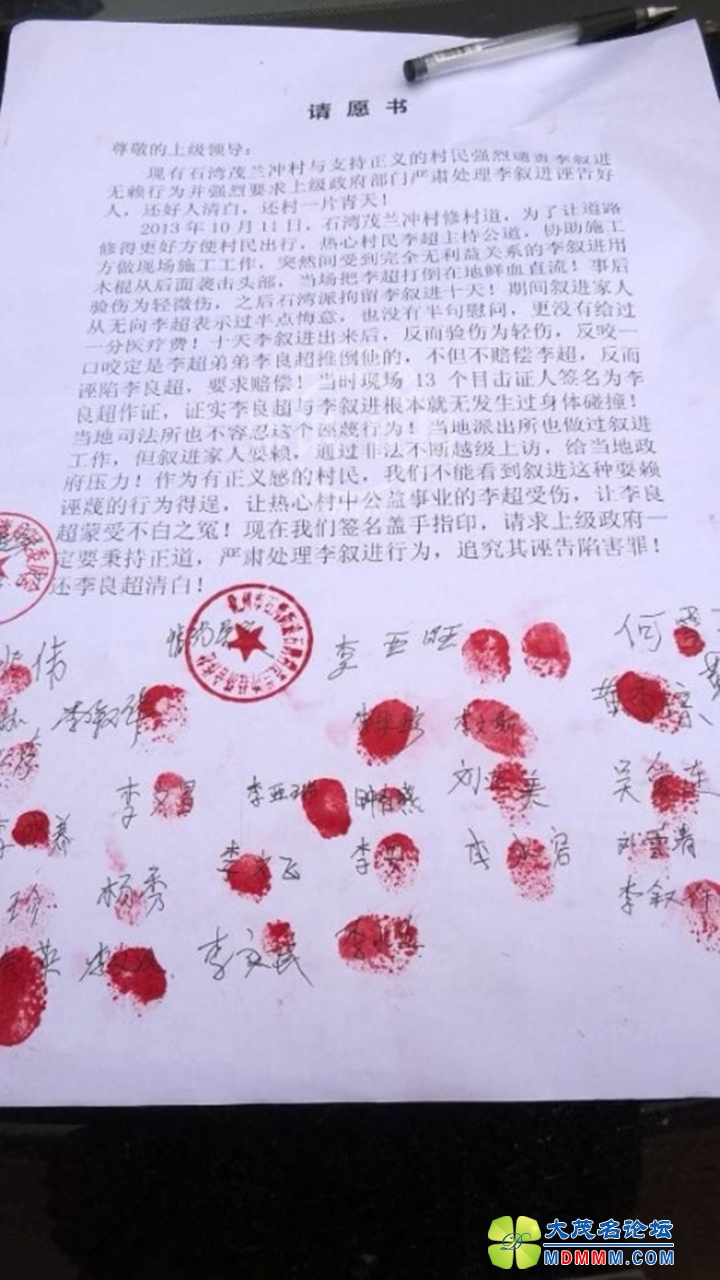 请愿书
尊敬的上级领导：
现有石湾茂兰冲村与支持正义的村民强烈谴责李叙进
无赖行为并强烈要求上级政府部门严肃处理李叙进诬告好
人，还好人清白，还村一片青天！
2013年10月11日，石湾茂兰冲村修村道，为了让道路
修得更好方便村民出行，热心村民李超主持公道，协助施工
方做现场施工工作，突然间受到完全无利益关系的李叙进用
木棍从后面袭击头部，当场把李超打倒在地鲜血直流！事后
验伤为轻微伤，之后石湾派拘留李叙进十天！期间叙进家人
从无向李超表示过半点悔意，也没有半句慰问，更没有给过
一分医疗费！十天李叙进出来后，反而验伤为轻伤，反咬一
口咬定是李超弟弟李良超推倒他的，不但不赔偿李超，反而
诬陷李良超，要求赔偿！当时现场 13 个目击证人签名为李
良超作证，证实李良超与李叙进根本就无发生过身体碰撞！
当地司法所也不容忍这个诬蔑行为！当地派出所也做过叙进
工作，但叙进家人耍赖，通过非法不断越级上访，给当地政
府压力！作为有正义感的村民，我们不能看到叙进这种耍赖
诬蔑的行为得逞，让热心村中公益事业的李超受伤，让李良
超蒙受不白之冤！现在我们签名盖手指印，请求上级政府一
定要秉持正道，严肃处理李叙进行为，追究其诬告陷害罪！
还李良超清白！
伟 李亚旺 何
李叙
李文昌 李亚 刘 美 吴 连
养 李 飞 李 刘雪青
珍 杨秀 李叙
英 李文民
大茂名论坛
MDMMM.COM